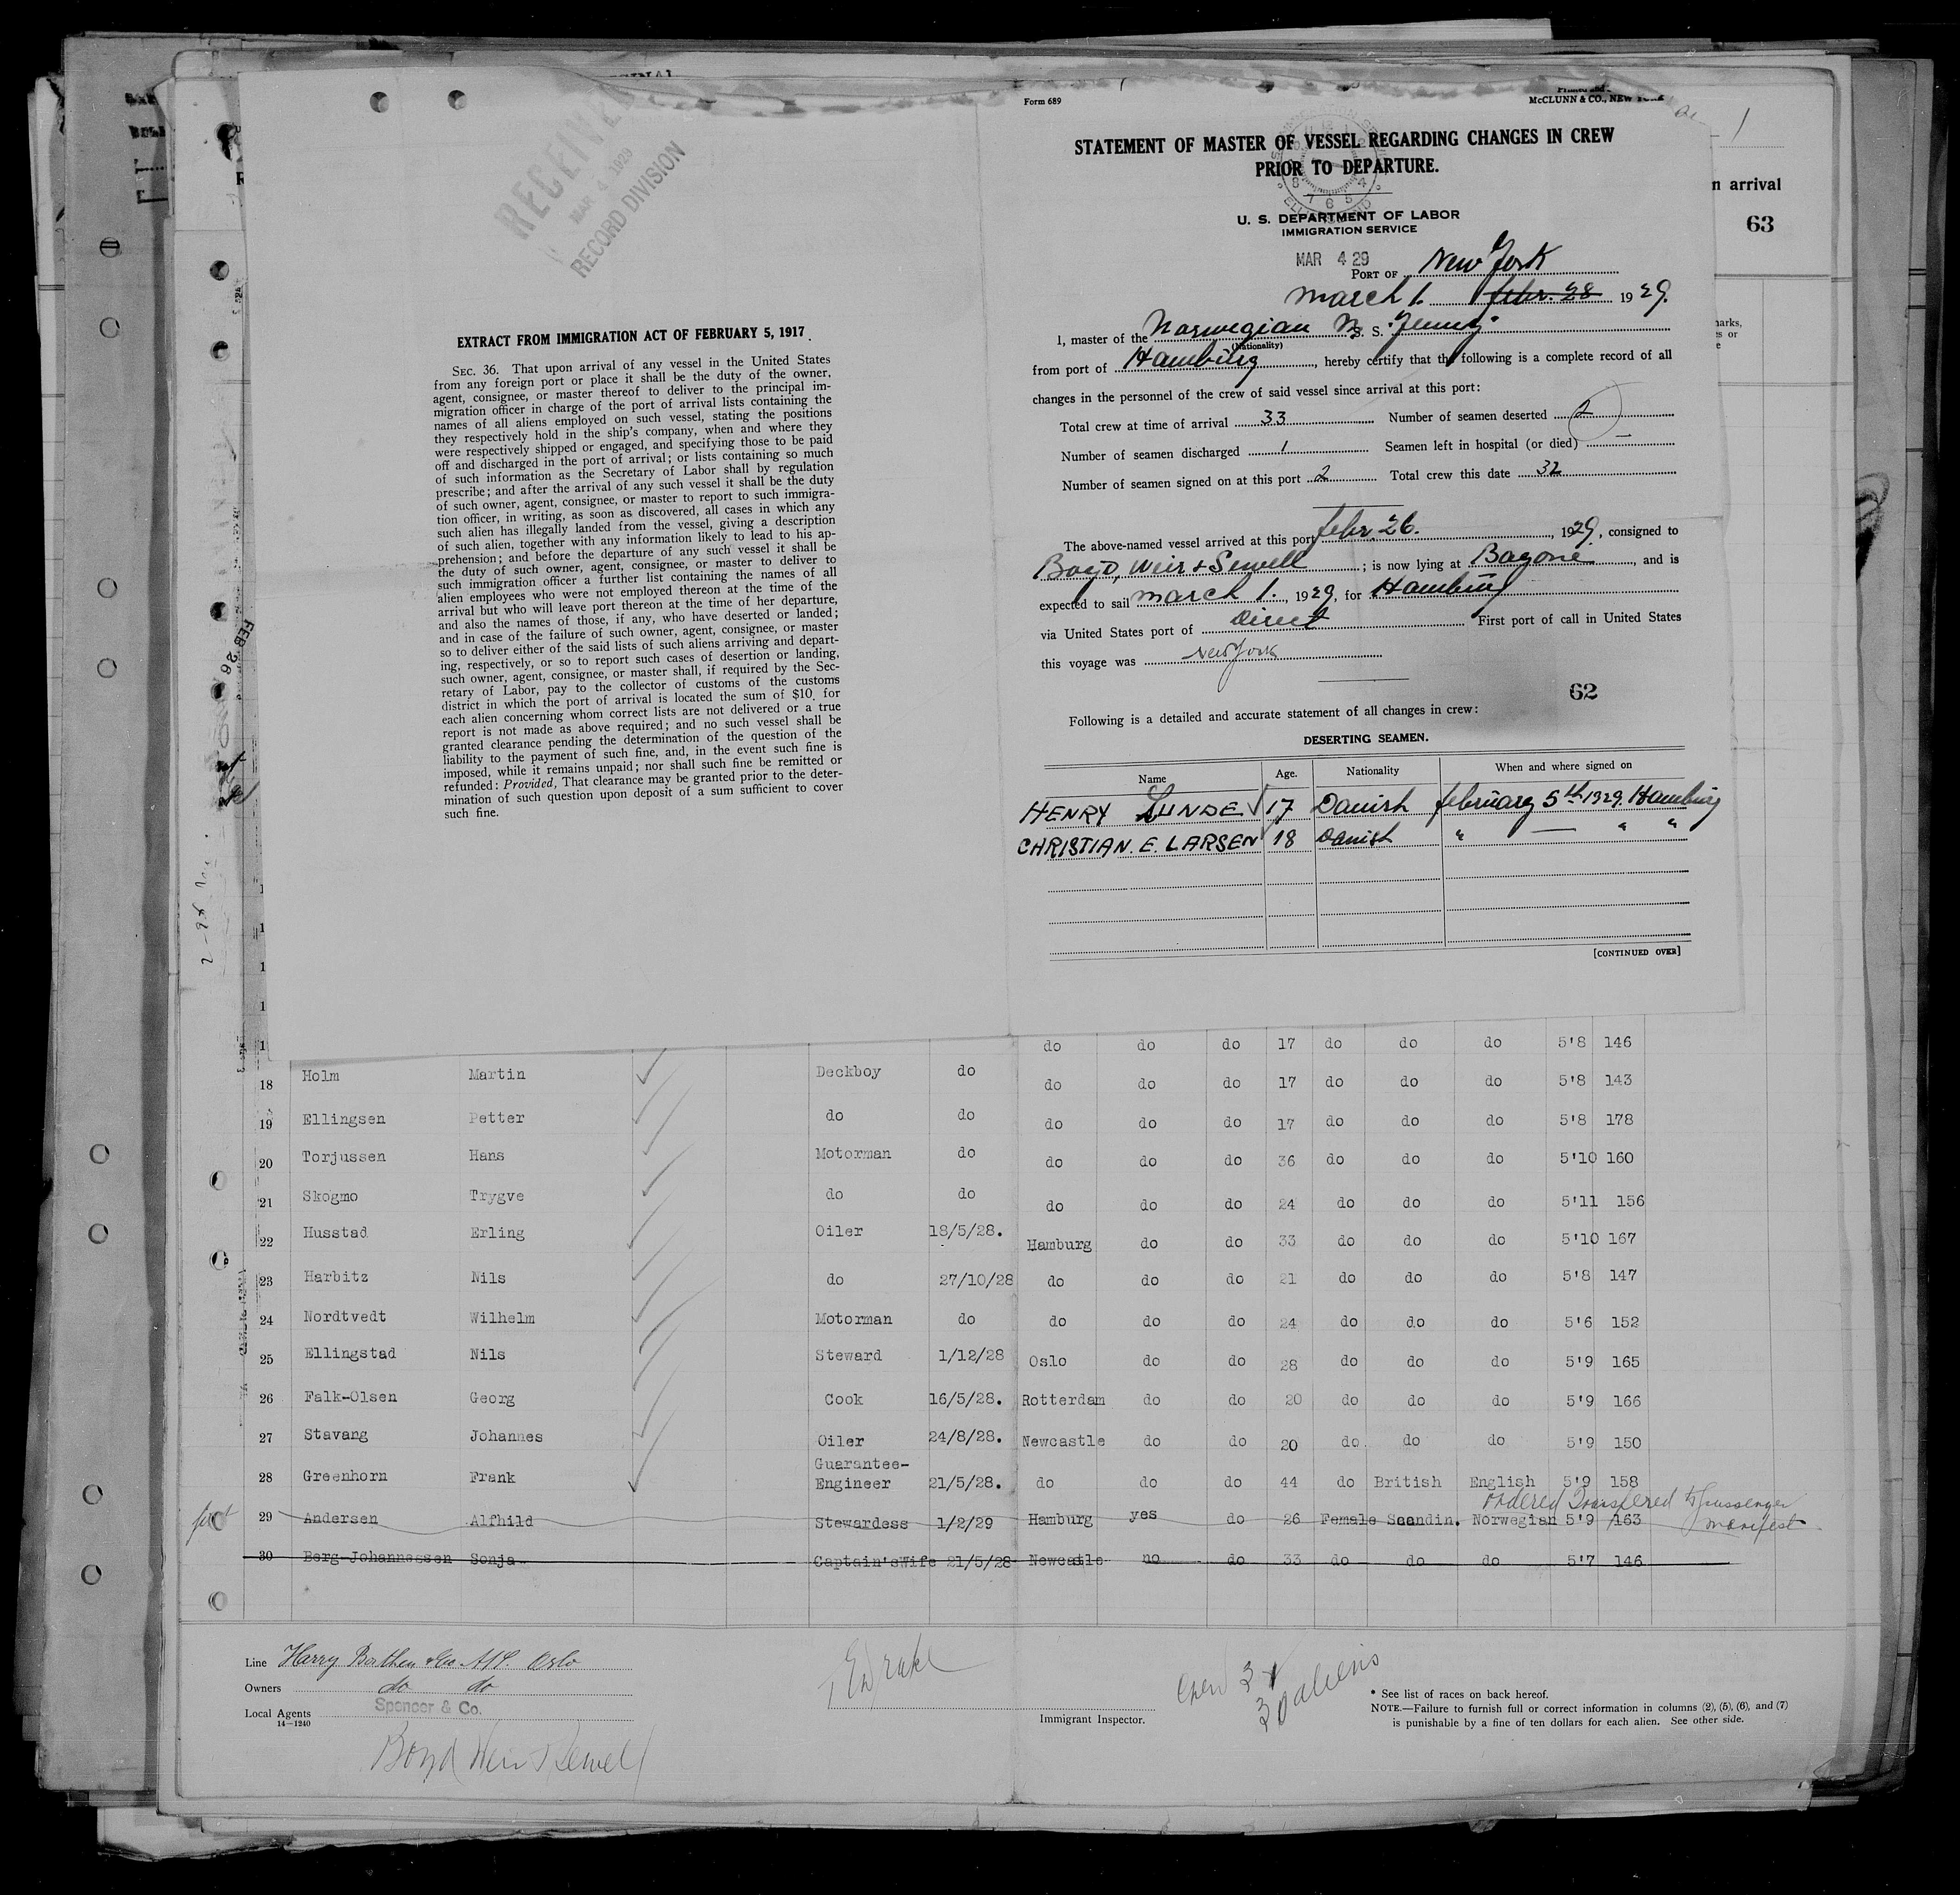 RECEIVED
MAR 4 1929
RECORD DIVISION
EXTRACT FROM IMMIGRATION ACT OF FEBRUARY 5, 1917.
SEC. 36. That upon arrival of any vessel in the United States
from any foreign port or place it shall be the duty of the owner,
agent, consignee, or master thereof to deliver to the principal im-
migration officer in charge of the port of arrival lists containing the
names of all aliens employed on such vessel, stating the positions
they respectively hold in the ship's company, when and where they
were respectively shipped or engaged, and specifying those to be paid
off and discharged in the port of arrival; or lists containing so much
of such information as the Secretary of Labor shall by regulation
prescribe; and after the arrival of any such vessel it shall be the duty
of such owner, agent, consignee, or master to report to such immigra-
tion officer, in writing, as soon as discovered, all cases in which any
such alien has illegally landed from the vessel, giving a description
of such alien, together with any information likely to lead to his ap-
prehension; and before the departure of any such vessel it shall be
the duty of such owner, agent, consignee, or master to deliver to
such immigration officer a further list containing the names of all
alien employees who were not employed thereon at the time of the
arrival but who will leave port thereon at the time of her departure,
and also the names of those, if any, who have deserted or landed;
and in case of the failure of such owner, agent, consignee, or master
so to deliver either of the said lists of such aliens arriving and depart-
ing, respectively, or so to report such cases of desertion or landing,
such owner, agent, consignee, or master shall, if required by the Sec-
retary of Labor, pay to the collector of customs of the customs
district in which the port of arrival is located the sum of $10. for
each alien concerning whom correct lists are not delivered or a true
report is not made as above required; and no such vessel shall be
granted clearance pending the determination of the question of the
liability to the payment of such fine, and, in the event such fine is
imposed, while it remains unpaid; nor shall such fine be remitted or
refunded: Provided, That clearance may be granted prior to the deter-
mination of such question upon deposit of a sum sufficient to cover
such fine.
Form 689
McCLUNN & CO., NEW YORK
STATEMENT OF MASTER OF VESSEL REGARDING CHANGES IN CREW
PRIOR TO DEPARTURE.
U. S. DEPARTMENT OF LABOR
IMMIGRATION SERVICE
MAR 4 29
PORT OF New York
march 1. febr. 28 1929.
I, master of the Norwegian M. S. S. "Jenny"
(Nationality)
from port of Hamburg, hereby certify that the following is a complete record of all
changes in the personnel of the crew of said vessel since arrival at this port:
Total crew at time of arrival 33 Number of seamen deserted 2
Number of seamen discharged 1 Seamen left in hospital (or died) —
Number of seamen signed on at this port 2 Total crew this date 32
The above-named vessel arrived at this port febr. 26. , 1929, consigned to
Boyd, Weir & Sewell ; is now lying at Bayone , and is
expected to sail march 1. , 1929, for Hamburg
via United States port of Direct First port of call in United States
this voyage was New York
62
Following is a detailed and accurate statement of all changes in crew:
DESERTING SEAMEN.
Name Age. Nationality When and where signed on
HENRY LUNDE 17 Danish february 5th 1929. Hamburg
CHRISTIAN. E. LARSEN 18 Danish " — " "
[CONTINUED OVER]
n arrival
63
do do do 17 do do do 5'8 146
18 Holm Martin Deckboy do do do do 17 do do do 5'8 143
19 Ellingsen Petter do do do do do 17 do do do 5'8 178
20 Torjussen Hans Motorman do do do do 36 do do do 5'10 160
21 Skogmo Trygve do do do do do 24 do do do 5'11 156
22 Husstad Erling Oiler 18/5/28. Hamburg do do 33 do do do 5'10 167
23 Harbitz Nils do 27/10/28 do do do 21 do do do 5'8 147
24 Nordtvedt Wilhelm Motorman do do do do 24 do do do 5'6 152
25 Ellingstad Nils Steward 1/12/28 Oslo do do 28 do do do 5'9 165
26 Falk-Olsen Georg Cook 16/5/28. Rotterdam do do 20 do do do 5'9 166
27 Stavang Johannes Oiler 24/8/28. Newcastle do do 20 do do do 5'9 150
28 Greenhorn Frank Guarantee-Engineer 21/5/28. do do do 44 do British English 5'9 158
ordered Transfered to passenger
manifest
29 Andersen Alfhild Stewardess 1/2/29 Hamburg yes do 26 Female Scandin. Norwegian 5'9 163
30 Berg-Johannessen Sonja Captain'sWife 21/5/28 Newcastle no do 33 do do do 5'7 146
Line Harry Borthen & Co. A/S. Oslo
Owners do do
Local Agents Spencer & Co.
14—1240
Boyd Weir & Sewell
Immigrant Inspector.
30 aliens
* See list of races on back hereof.
NOTE.—Failure to furnish full or correct information in columns (2), (5), (6), and (7)
is punishable by a fine of ten dollars for each alien. See other side.